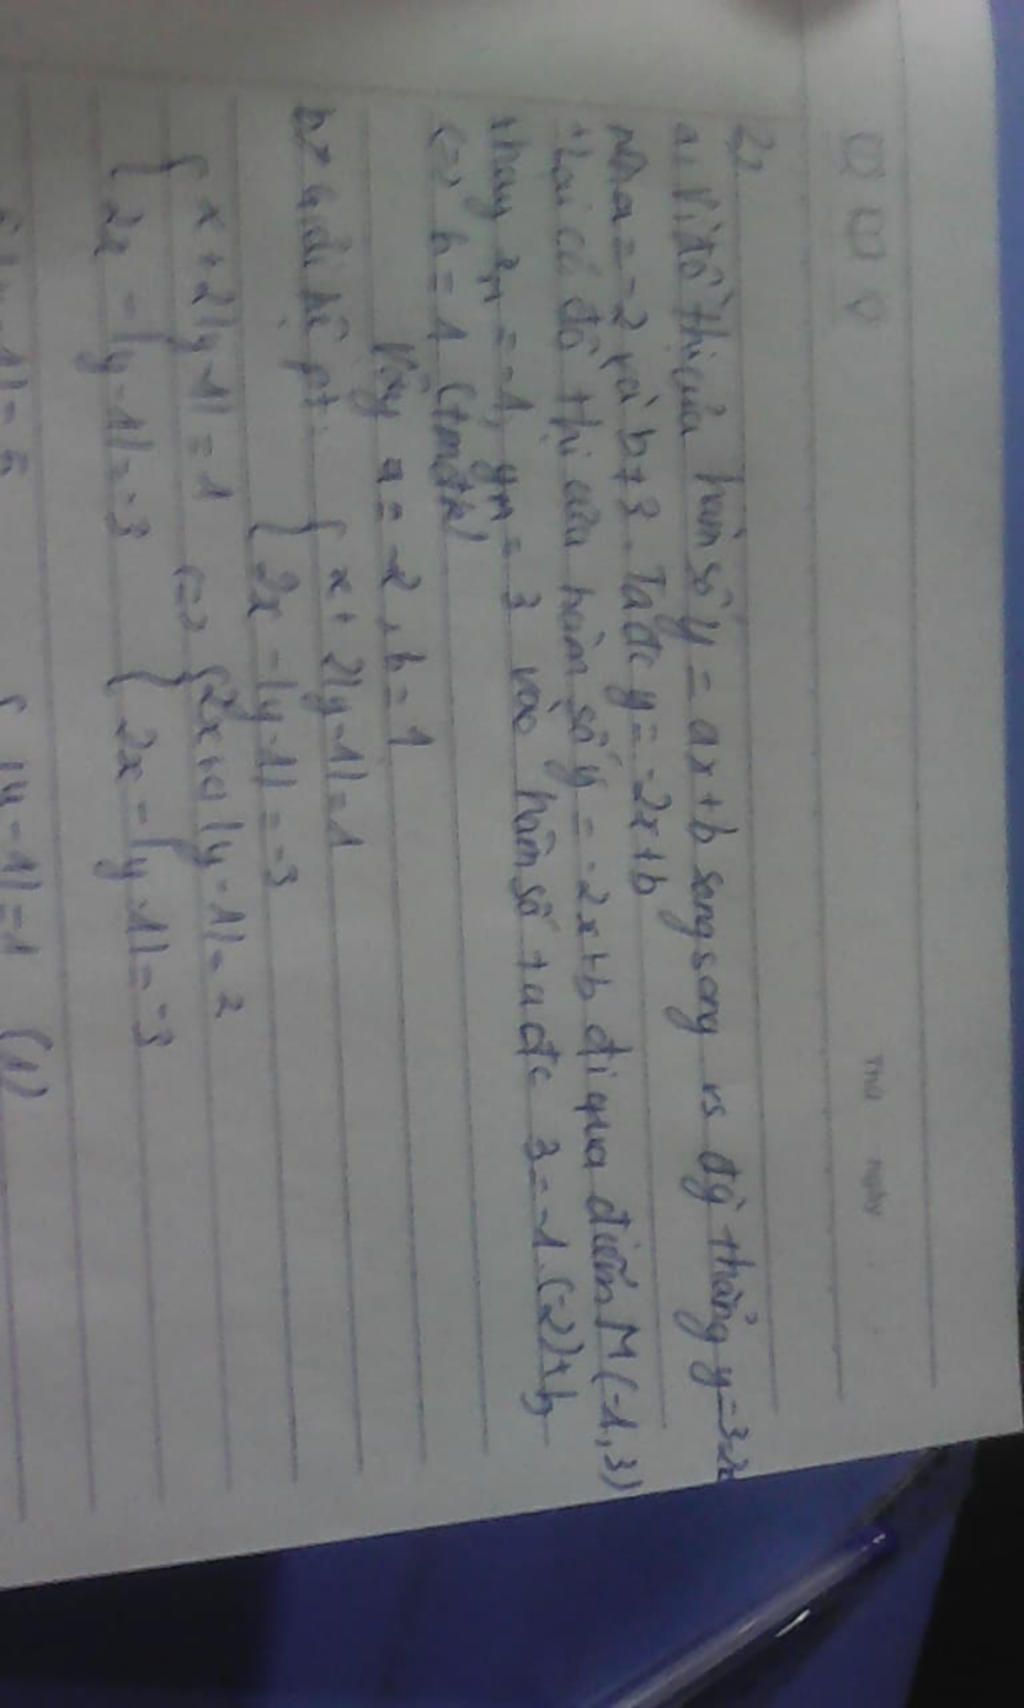 Thứ Ngày
2,
a, Vì đồ thị của hàm số y = ax+b song song vs đg thẳng y=3-2x
nên a = -2 và b≠3. Ta đc y = -2x+b
+Lại có đồ thị của hàm số y = -2x+b đi qua điểm M(-1,3)
thay xM = -1, yM = 3 vào hàm số ta đc 3=-1.(-2)+b
<=> b=1 (tmđk)
Vậy a = -2, b=1
b, Giải hệ pt: { x+2|y-1|=1
{ 2x-|y-1|=-3
{ x+2|y-1|=1 <=> { 2x+4|y-1|=2
{ 2x-|y-1|=-3 { 2x-|y-1|=-3
|y-1|=5 { |y-1|=1 (1)